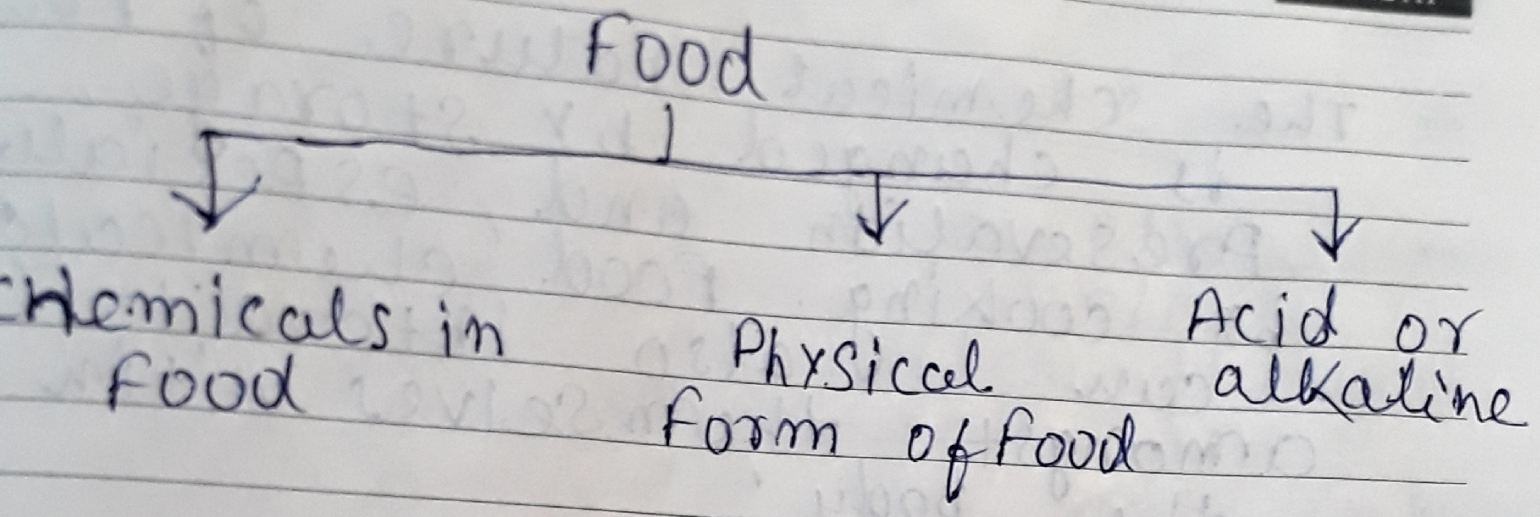 Food
Chemicals in
food
Physical
form of food
Acid or
alkaline